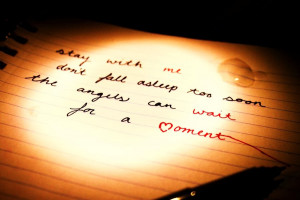 stay with me
don't fall asleep too soon
the angels can wait
for a moment